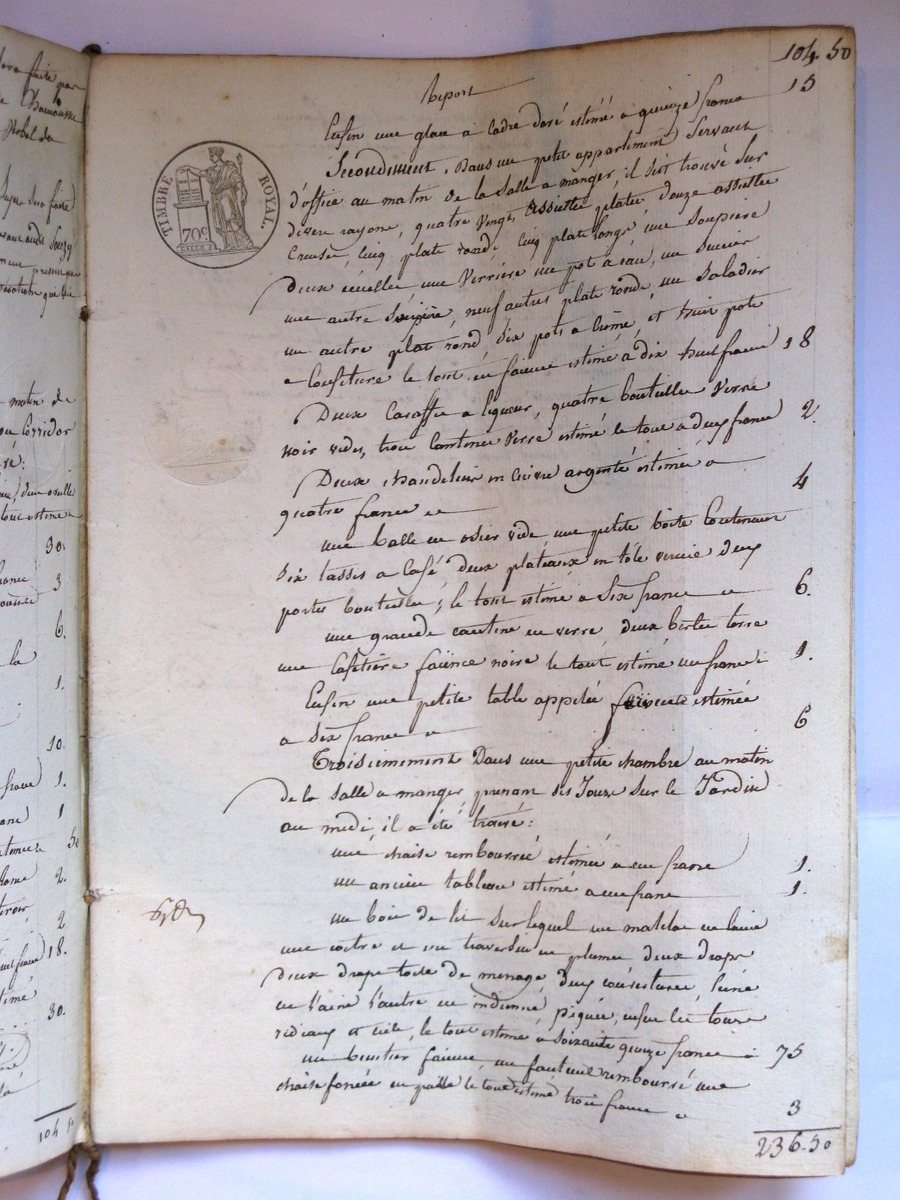 104. 50
Report
Enfin une glace a cadre doré estimé a quinze francs 15
Secondement. Dans un petit appartement Servant
d'office au matin de la Salle a manger, il s'est trouvé Sur
divers rayons, quatre Vingt assiettes plates Douze assiettes
Creuses, Cinq plats ronds, Cinq plats longs une Soupière
Deux une Verrière un pot a eau, un Sucrier
une autre Soupière, neuf autres plats ronds, un Saladier
un autre plat rond, Six pots a Crême, et huit pots
a Confiture le tout en faience estimé a dix huit francs 18
Deux Caraffes a liqueur, quatre bouteilles Verre
noir vides, trois Cantines Verre estimé le tout a deux francs 2.
Deux chandeliers en cuivre argenté estimés a
quatre francs 4
une balle en osier vide, une petite boîte Contenant
Six tasses a Café deux plateaux en tôle vernie deux
portes bouteilles; le tout estimé a Six francs 6.
une grande cantine en verre, deux terre
une Cafetière faïence noire le tout estimé un franc 1.
Enfin une petite table appelée estimée
a Six francs 6
Troisiemement Dans une petite chambre au matin
de la Salle a manger prenant Ses Jours Sur le Jardin
au midi, il a été trouvé:
une chaise rembourrée estimée a un franc 1.
un ancien tableau estimé a un franc 1.
un bois de lit Sur lequel un matelas en laine
une coitre et un traversin en plumes deux draps
Deux draps toile de menage, deux couvertures, l'une
en laine l'autre en indienne piquée, enfin les tours
rideaux et ciel, le tout estimé a Soixante quinze francs 75
un benitier faience, un fauteuil rembourré une
chaise foncée en paille le tout estimé trois francs 3
236. 50
TIMBRE ROYAL.
70c
30.
3
6.
la
1.
10.
1.
1
50
2.
2
18.
30.
104 50
matin de
Corridor